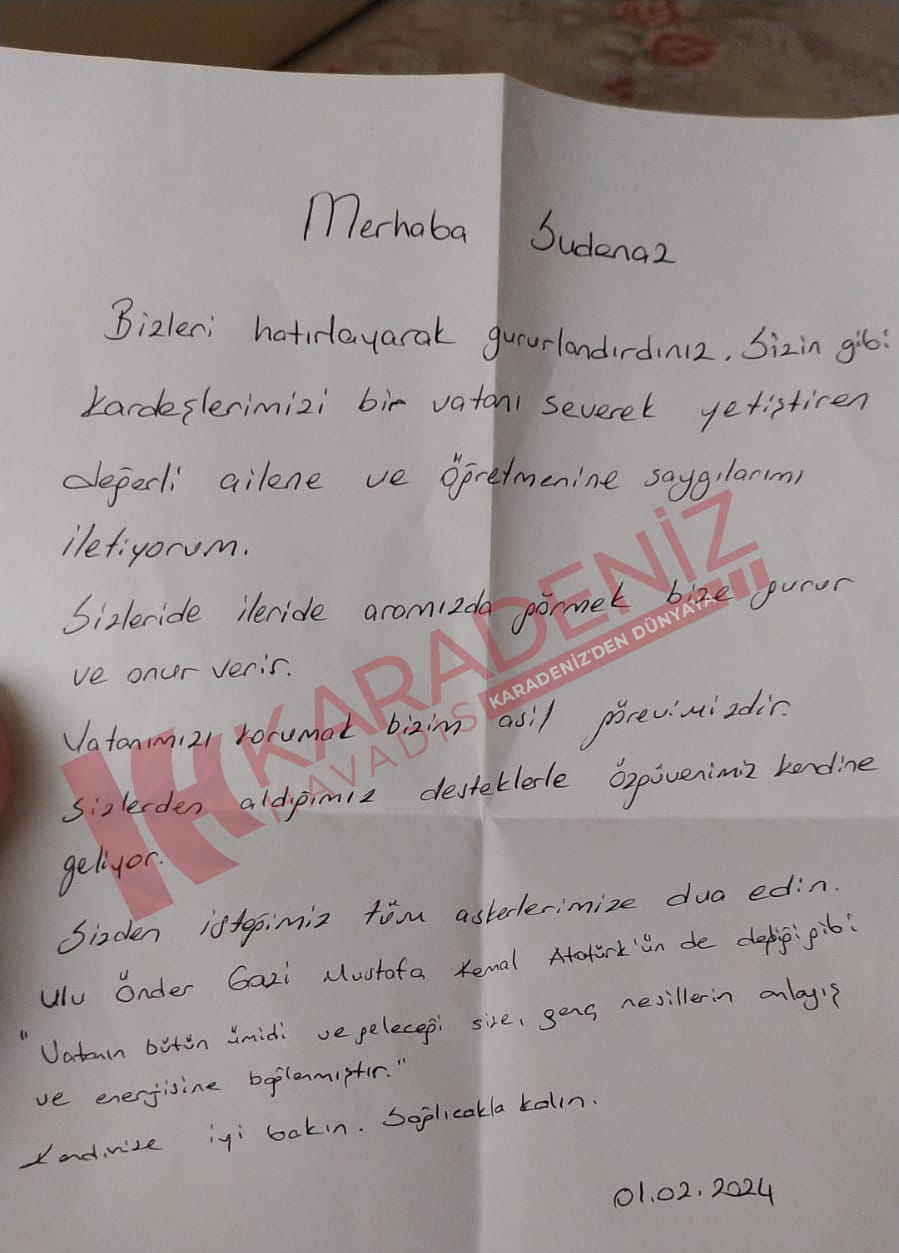 Merhaba Sudenaz
Bizleri hatırlayarak gururlandırdınız. Sizin gibi
kardeşlerimizi bir vatanı severek yetiştiren
değerli ailene ve Öğretmenine saygılarımı
iletiyorum.
Sizleride ileride aramızda görmek bize gurur
ve onur verir.
Vatanımızı korumak bizim asil görevimizdir.
Sizlerden aldığımız desteklerle özgüvenimiz kendine
geliyor.
Sizden isteğimiz tüm askerlerimize dua edin.
Ulu Önder Gazi Mustafa Kemal Atatürk'ün de dediği gibi
"Vatanın bütün ümidi ve geleceği size, genç nesillerin anlayış
ve enerjisine bağlanmıştır."
Kendinize iyi bakın. Sağlıcakla kalın.
01.02.2024
KARADENİZ
HAVADİS
KARADENİZ'DEN DÜNYAYA